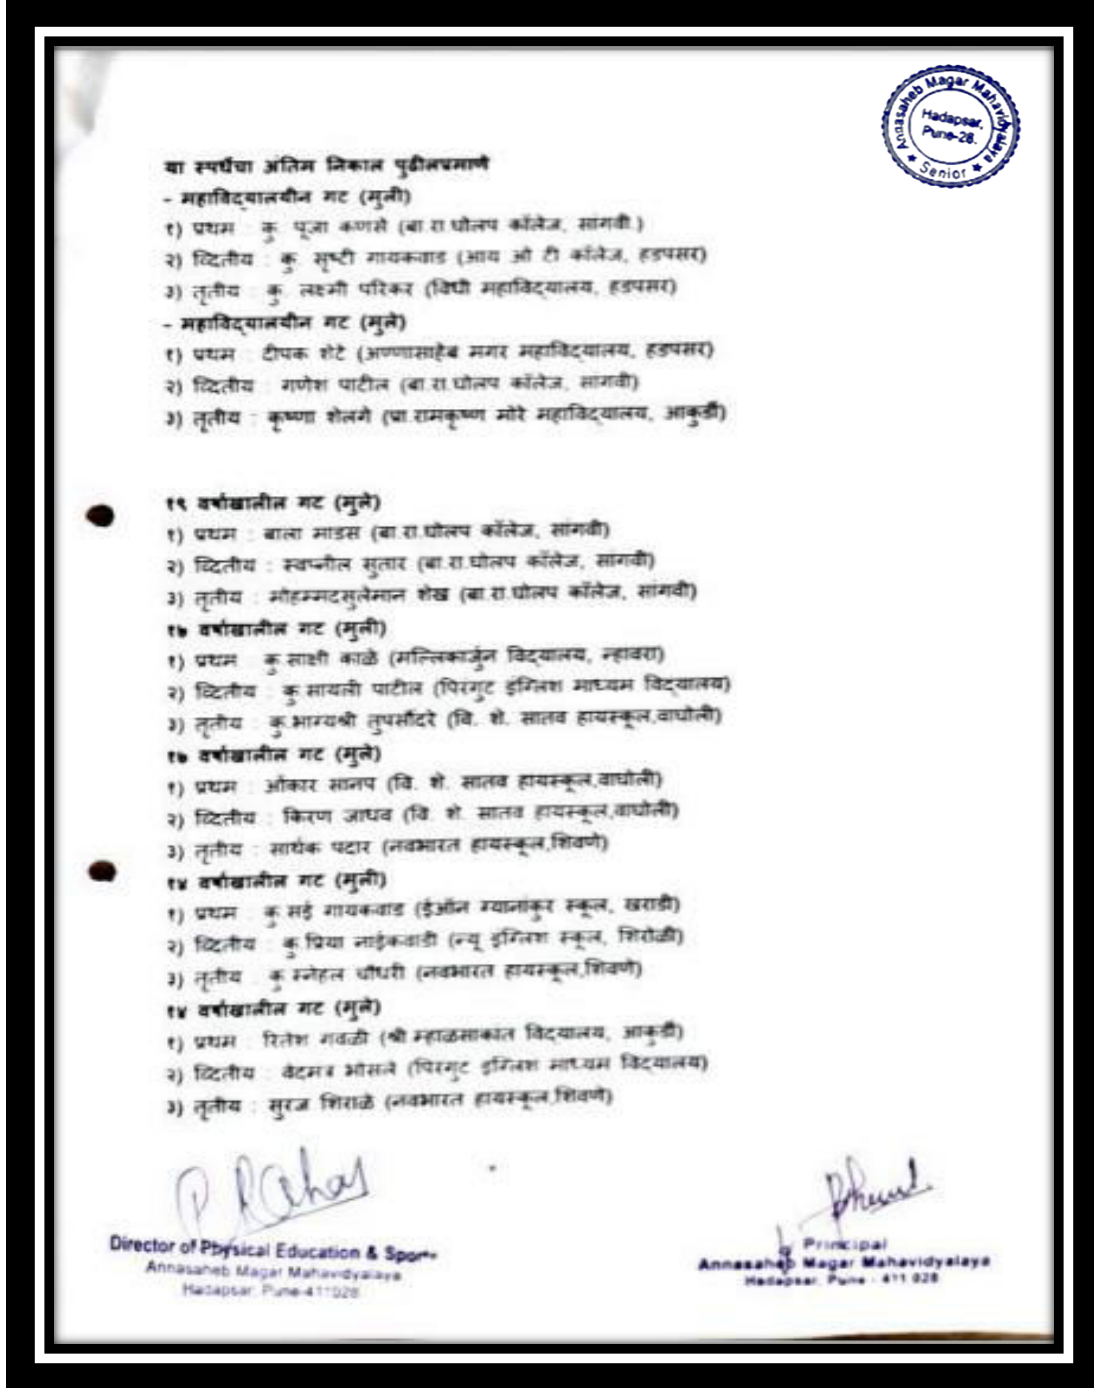 Annasaheb Magar Mahavidyalaya
Hadapsar,
Pune-28.
★ Senior ★
या स्पर्धेचा अंतिम निकाल पुढीलप्रमाणे
- महाविद्यालयीन गट (मुली)
१) प्रथम : कु. पूजा कणसे (बा.रा.घोलप कॉलेज, सांगवी.)
२) व्दितीय : कु. सृष्टी गायकवाड (आय ओ टी कॉलेज, हडपसर)
३) तृतीय : कु. लक्ष्मी परिकर (विधी महाविद्यालय, हडपसर)
- महाविद्यालयीन गट (मुले)
१) प्रथम : दीपक शेटे (अण्णासाहेब मगर महाविद्यालय, हडपसर)
२) व्दितीय : गणेश पाटील (बा.रा.घोलप कॉलेज, सांगवी)
३) तृतीय : कृष्णा शेलगे (प्रा.रामकृष्ण मोरे महाविद्यालय, आकुर्डी)
१९ वर्षाखालील गट (मुले)
१) प्रथम : बाला माडस (बा.रा.घोलप कॉलेज, सांगवी)
२) व्दितीय : स्वप्नील सुतार (बा.रा.घोलप कॉलेज, सांगवी)
३) तृतीय : मोहम्मदसुलेमान शेख (बा.रा.घोलप कॉलेज, सांगवी)
१७ वर्षाखालील गट (मुली)
१) प्रथम : कु.साक्षी काळे (मल्लिकार्जुन विद्यालय, न्हावरा)
२) व्दितीय : कु.सायली पाटील (पिरंगुट इंग्लिश माध्यम विद्यालय)
३) तृतीय : कु.भाग्यश्री तुपसौंदरे (वि. शे. सातव हायस्कूल,वाघोली)
१७ वर्षाखालील गट (मुले)
१) प्रथम : ओंकार सानप (वि. शे. सातव हायस्कूल,वाघोली)
२) व्दितीय : किरण जाधव (वि. शे. सातव हायस्कूल,वाघोली)
३) तृतीय : सार्थक पदार (नवभारत हायस्कूल,शिवणे)
१४ वर्षाखालील गट (मुली)
१) प्रथम : कु.सई गायकवाड (ईऑन ग्यानांकुर स्कूल, खराडी)
२) व्दितीय : कु.प्रिया नाईकवाडी (न्यू इंग्लिश स्कूल, शिरोळी)
३) तृतीय : कु.स्नेहल चौधरी (नवभारत हायस्कूल,शिवणे)
१४ वर्षाखालील गट (मुले)
१) प्रथम : रितेश गवळी (श्री म्हाळसाकांत विद्यालय, आकुर्डी)
२) व्दितीय : भोसले (पिरंगुट इंग्लिश माध्यम विद्यालय)
३) तृतीय : सुरज शिराळे (नवभारत हायस्कूल,शिवणे)
Director of Physical Education & Sports
Annasaheb Magar Mahavidyalaya
Hadapsar, Pune-411028
Principal
Annasaheb Magar Mahavidyalaya
Hadapsar, Pune - 411 028